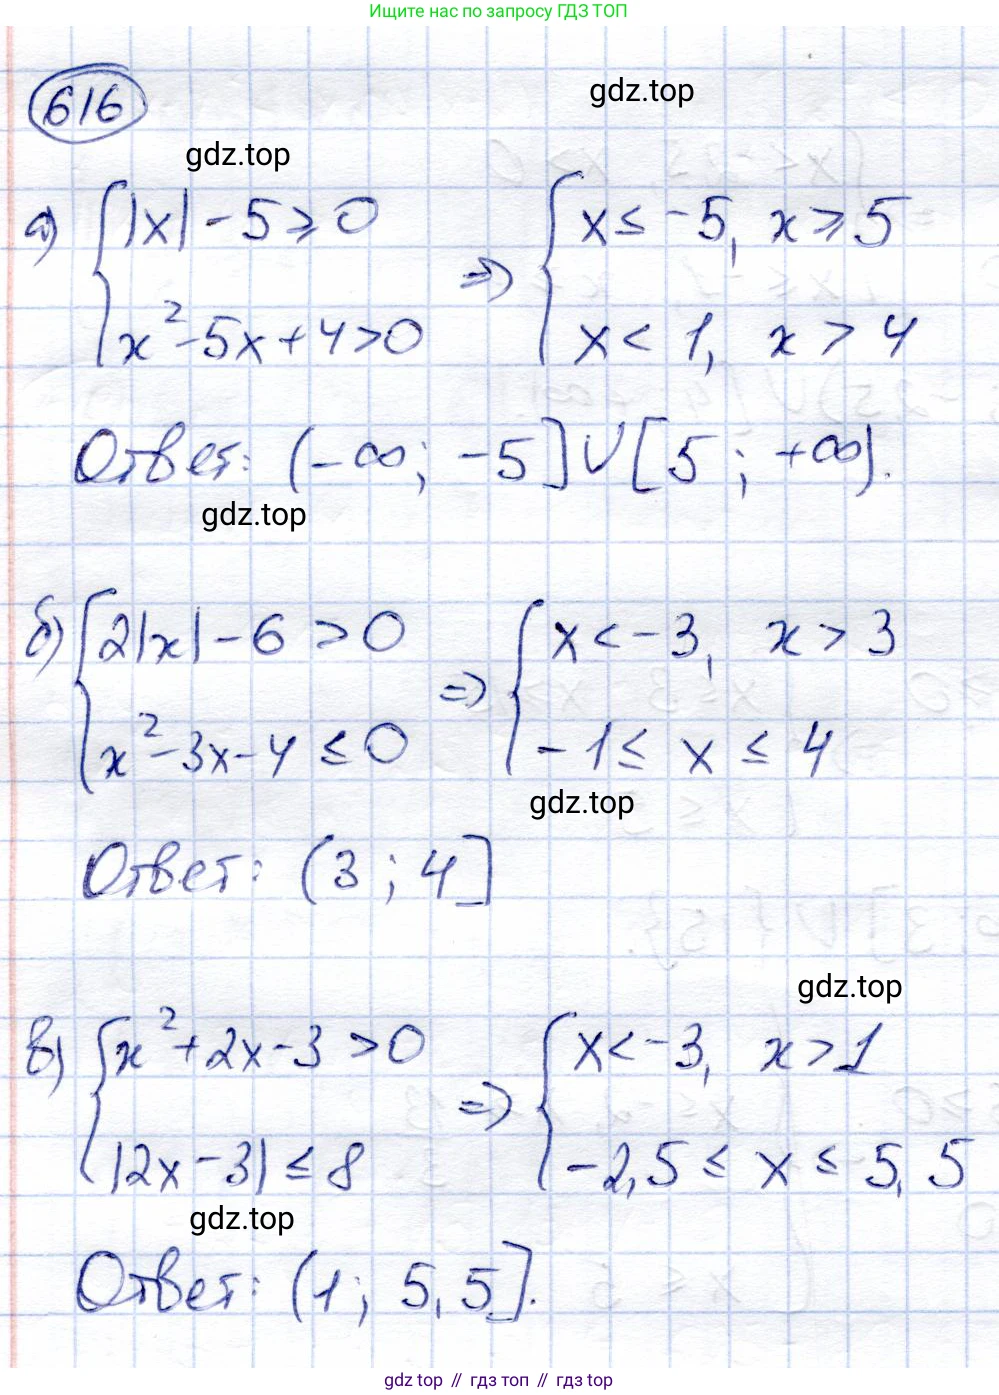 Ищите нас по запросу ГДЗ ТОП
616
gdz.top
gdz.top
а) { |x| - 5 ≥ 0 => { x ≤ -5, x ≥ 5
x² - 5x + 4 > 0 x < 1, x > 4
Ответ: (-∞; -5] ∪ [5; +∞).
gdz.top
б) { 2|x| - 6 > 0 => { x < -3, x > 3
x² - 3x - 4 ≤ 0 -1 ≤ x ≤ 4
gdz.top
Ответ: (3; 4]
gdz.top
в) { x² + 2x - 3 > 0 => { x < -3, x > 1
|2x - 3| ≤ 8 -2,5 ≤ x ≤ 5,5
gdz.top
Ответ: (1; 5,5].
gdz top // гдз топ // gdz top